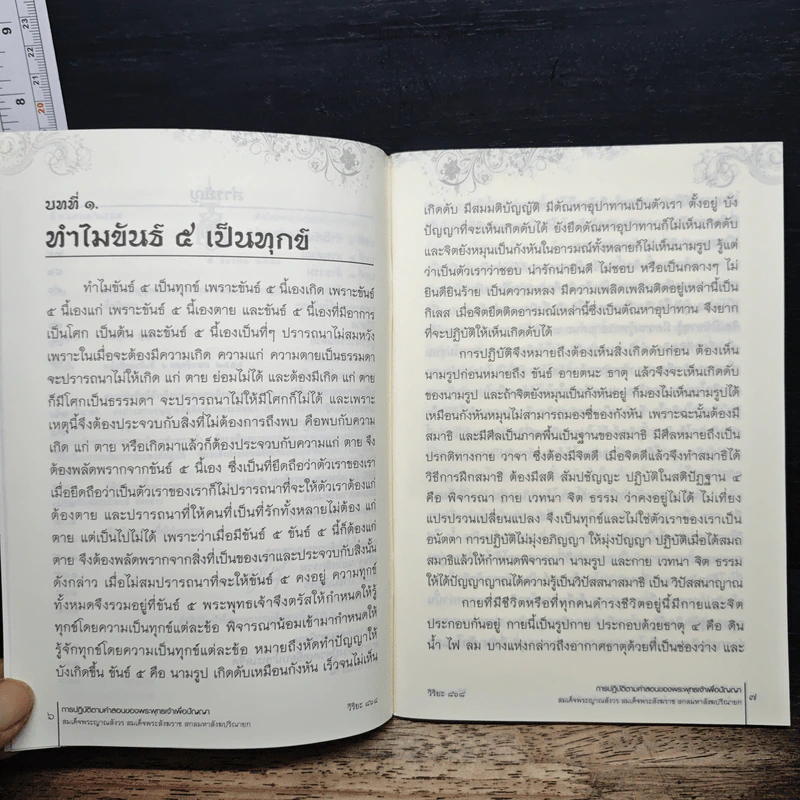 9
8
23
22
21
20
บทที่ ๑.
ทำไมขันธ์ ๕ เป็นทุกข์
ทำไมขันธ์ ๕ เป็นทุกข์ เพราะขันธ์ ๕ นี้เองเกิด เพราะขันธ์
๕ นี้เองแก่ เพราะขันธ์ ๕ นี้เองตาย และขันธ์ ๕ นี้เองที่มีอาการ
เป็นโศก เป็นต้น และขันธ์ ๕ นี้เองเป็นที่ๆ ปรารถนาไม่สมหวัง
เพราะในเมื่อจะต้องมีความเกิด ความแก่ ความตายเป็นธรรมดา
จะปรารถนาไม่ให้เกิด แก่ ตาย ย่อมไม่ได้ และต้องมีเกิด แก่ ตาย
ก็มีโศกเป็นธรรมดา จะปรารถนาไม่ให้มีโศกก็ไม่ได้ และเพราะ
เหตุนี้จึงต้องประจวบกับสิ่งที่ไม่ต้องการถึงพบ คือพบกับความ
เกิด แก่ ตาย หรือเกิดมาแล้วก็ต้องประจวบกับความแก่ ตาย จึง
ต้องพลัดพรากจากขันธ์ ๕ นี้เอง ซึ่งเป็นที่ยึดถือว่าตัวเราของเรา
เมื่อยึดถือว่าเป็นตัวเราของเราก็ไม่ปรารถนาที่จะให้ตัวเราต้องแก่
ต้องตาย และปรารถนาที่ให้คนที่เป็นที่รักทั้งหลายไม่ต้อง แก่
ตาย แต่เป็นไปไม่ได้ เพราะว่าเมื่อมีขันธ์ ๕ ขันธ์ ๕ นี้ก็ต้องแก่
ตาย จึงต้องพลัดพรากจากสิ่งที่เป็นของเราและประจวบกับสิ่งนั้น
ดังกล่าว เมื่อไม่สมปรารถนาที่จะให้ขันธ์ ๕ คงอยู่ ความทุกข์
ทั้งหมดจึงรวมอยู่ที่ขันธ์ ๕ พระพุทธเจ้าจึงตรัสให้กำหนดให้รู้
ทุกข์โดยความเป็นทุกข์แต่ละข้อ พิจารณาน้อมเข้ามากำหนดให้
รู้จักทุกข์โดยความเป็นทุกข์แต่ละข้อ หมายถึงหัดทำปัญญาให้
บังเกิดขึ้น ขันธ์ ๕ คือ นามรูป เกิดดับเหมือนกังหัน เร็วจนไม่เห็น
๖
การปฏิบัติตามคำสอนของพระพุทธเจ้าเพื่อปัญญา
สมเด็จพระญาณสังวร สมเด็จพระสังฆราช สกลมหาสังฆปริณายก
วิริยะ ๘๖๘
เกิดดับ มีสมมติบัญญัติ มีตัณหาอุปาทานเป็นตัวเรา ตั้งอยู่ บัง
ปัญญาที่จะเห็นเกิดดับได้ ยังยึดตัณหาอุปาทานก็ไม่เห็นเกิดดับ
และจิตยังหมุนเป็นกังหันในอารมณ์ทั้งหลายก็ไม่เห็นนามรูป รู้แต่
ว่าเป็นตัวเราว่าชอบ น่ารักน่ายินดี ไม่ชอบ หรือเป็นกลางๆ ไม่
ยินดียินร้าย เป็นความหลง มีความเพลิดเพลินติดอยู่เหล่านี้เป็น
กิเลส เมื่อจิตยึดติดอารมณ์เหล่านี้ซึ่งเป็นตัณหาอุปาทาน จึงยาก
ที่จะปฏิบัติให้เห็นเกิดดับได้
การปฏิบัติจึงหมายถึงต้องให้เห็นสิ่งเกิดดับก่อน ต้องเห็น
นามรูปก่อนหมายถึง ขันธ์ อายตนะ ธาตุ แล้วจึงจะเห็นเกิดดับ
ของนามรูป และถ้าจิตยังหมุนเป็นกังหันอยู่ ก็มองไม่เห็นนามรูปได้
เหมือนกังหันหมุนไม่สามารถมองซี่ของกังหัน เพราะฉะนั้นต้องมี
สมาธิ และมีศีลเป็นภาคพื้นเป็นฐานของสมาธิ มีศีลหมายถึงเป็น
ปรกติทางกาย วาจา ซึ่งต้องมีจิตดี เมื่อจิตดีแล้วจึงทำสมาธิได้
วิธีการฝึกสมาธิ ต้องมีสติ สัมปชัญญะ ปฏิบัติในสติปัฏฐาน ๔
คือ พิจารณา กาย เวทนา จิต ธรรม ว่าคงอยู่ไม่ได้ ไม่เที่ยง
แปรปรวนเปลี่ยนแปลง จึงเป็นทุกข์และไม่ใช่ตัวเราของเราเป็น
อนัตตา การปฏิบัติไม่มุ่งอภิญญา ให้มุ่งปัญญา ปฏิบัติเมื่อได้สมถ
สมาธิแล้วให้กำหนดพิจารณา นามรูป และกาย เวทนา จิต ธรรม
ให้ได้ปัญญาญาณได้ความรู้เป็นวิปัสสนาสมาธิ เป็น วิปัสสนาญาณ
กายที่มีชีวิตหรือที่ทุกคนดำรงชีวิตอยู่นี้มีกายและจิต
ประกอบกันอยู่ กายนี้เป็นรูปกาย ประกอบด้วยธาตุ ๔ คือ ดิน
น้ำ ไฟ ลม บางแห่งกล่าวถึงอากาศธาตุด้วยที่เป็นช่องว่าง และ
วิริยะ ๘๖๘
การปฏิบัติตามคำสอนของพระพุทธเจ้าเพื่อปัญญา
สมเด็จพระญาณสังวร สมเด็จพระสังฆราช สกลมหาสังฆปริณายก
๗